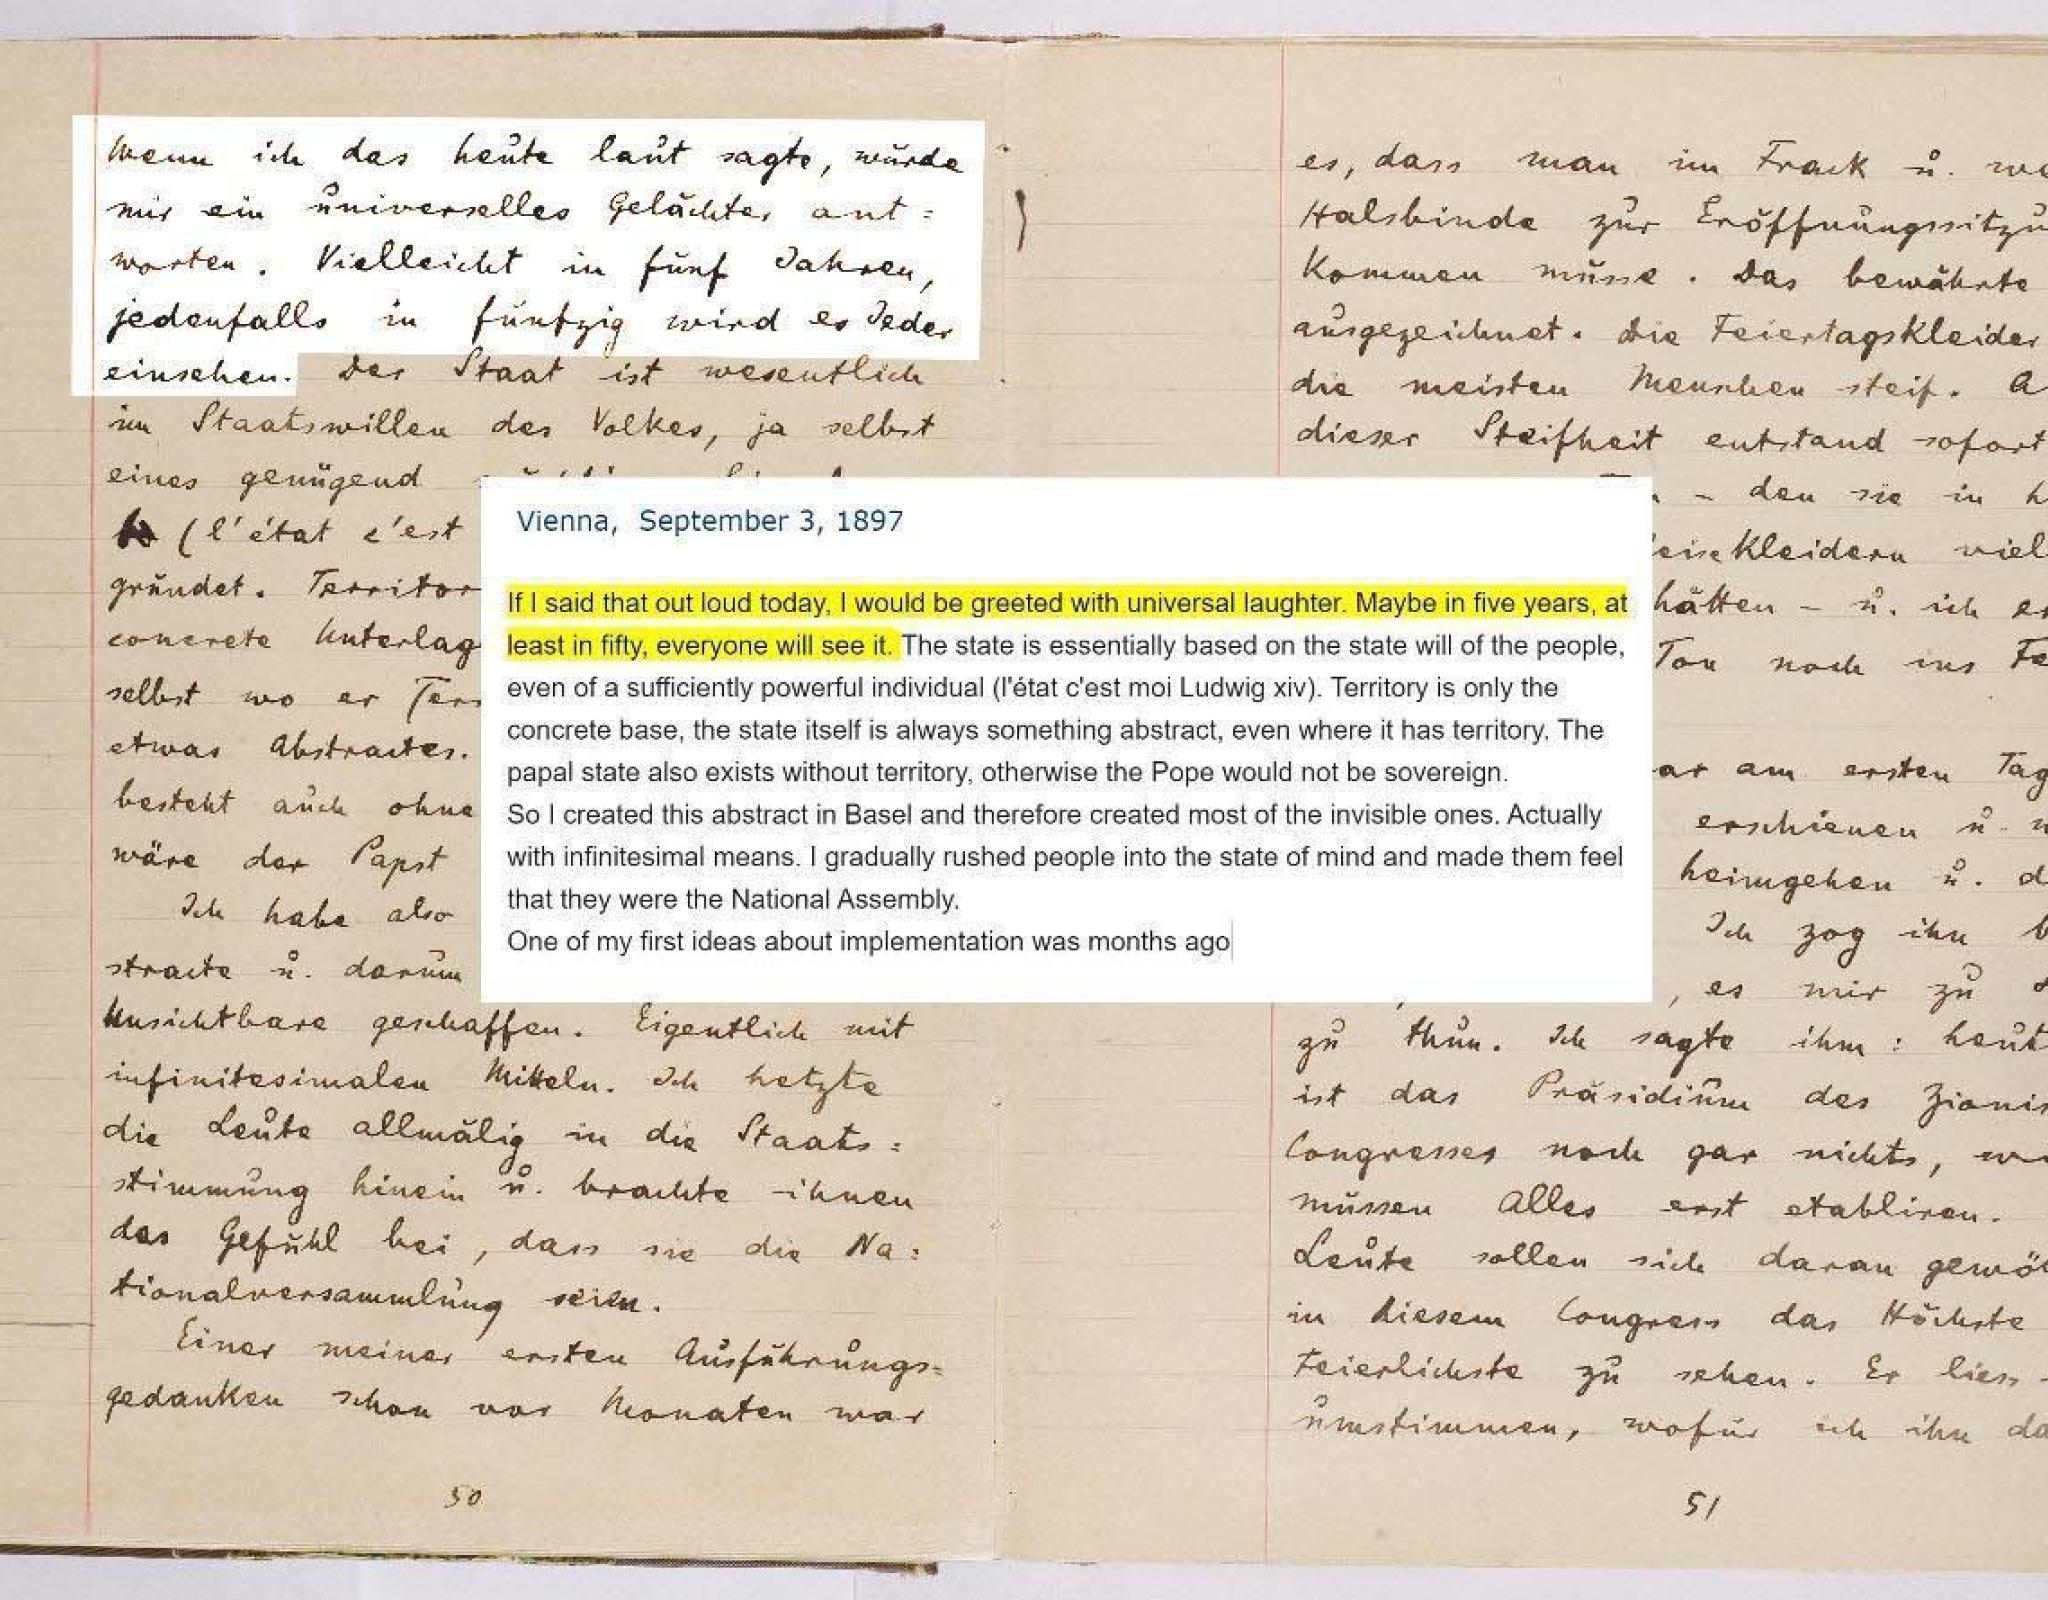 Wenn ich das heute laut sagte, würde
mir ein universelles Gelächter ant=
worten. Vielleicht in fünf Jahren,
jedenfalls in fünfzig wird es Jeder
einsehen. Der Staat ist wesentlich
im Staatswillen des Volkes, ja selbst
eines genügend
(l'état c'est
gründet. Territor
concrete Unterlag
selbst wo er Terr
etwas Abstractes.
besteht auch ohne
wäre der Papst
Ich habe also
stracte u. darum
Unsichtbare geschaffen. Eigentlich mit
infinitesimalen Mitteln. Ich hetzte
die Leute allmälig in die Staats=
stimmung hinein u. brachte ihnen
das Gefühl bei, dass sie die Na=
tionalversammlung seien.
Einer meiner ersten Ausführungs=
gedanken schon vor Monaten war
50
Vienna, September 3, 1897
If I said that out loud today, I would be greeted with universal laughter. Maybe in five years, at
least in fifty, everyone will see it. The state is essentially based on the state will of the people,
even of a sufficiently powerful individual (l'état c'est moi Ludwig xiv). Territory is only the
concrete base, the state itself is always something abstract, even where it has territory. The
papal state also exists without territory, otherwise the Pope would not be sovereign.
So I created this abstract in Basel and therefore created most of the invisible ones. Actually
with infinitesimal means. I gradually rushed people into the state of mind and made them feel
that they were the National Assembly.
One of my first ideas about implementation was months ago
es, dass man im Frack u. we
Halsbinde zur Eröffnungssitzu
kommen müsse. Das bewährte
ausgezeichnet. Die Feiertagskleider
die meisten Menschen steif. A
dieser Steifheit entstand sofort
– den sie in h
eisekleidern viel
hätten – u. ich er
Ton noch ins Fe
ar am ersten Tag
erschienen u.
heimgehen u. d
Ich zog ihn b
, es mir zu
zu thun. Ich sagte ihm: heut
ist das Präsidium des Zionis
Congresses noch gar nichts, wi
müssen Alles erst etabliren.
Leute sollen sich daran gewö
in diesem Congress das Höchste
Feierlichste zu sehen. Er liess
umstimmen, wofür ich ihn da
51